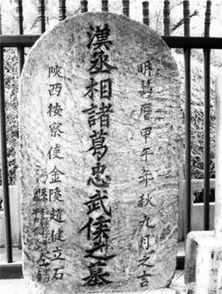 明萬曆甲午年秋九月之吉
漢丞相諸葛忠武侯之墓
陝西按察使金陵趙健立石